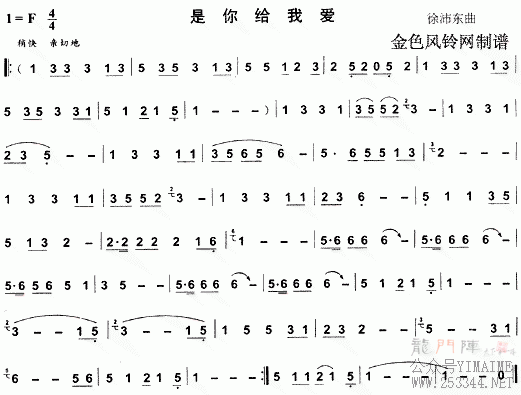 1=F 4/4
是 你 给 我 爱
徐沛东曲
稍快 亲切地
金色风铃网制谱
‖: ( 1 33 3 13 | 5 35 5 13 | 5 35 1 3 | 2 5205 2 | 1 33 3 13 |
5 35 3 31 | 5 1 21 5 | 1 - - ) | 1 3 3 11 | 35 52 3 - |
23 5 - - | 1 3 3 11 | 3565 6 - | 5· 6 5513 | 2 - - - |
1 3 3 11 | 3552 3 - | 1 3 3 11 | 35 5 5 31 |
5 1 23 - | 2·2 22 2 16 | 1 - - - | 5·666 6 - |
5·656 5 - | 1 35 - - | 2 - - - | 5·666 6 - | 5·666 6 - |
3 - - 15 | 3 - - 15 | 1 5 5 31 | 2 - - - |
6 - - 56 | 5 1 21 5 | 1 - - - :‖ 5 1121 5 | 1 - - - | 1 - - 0 ‖
龍門陣
公众号YIMAIME
www.253344.net